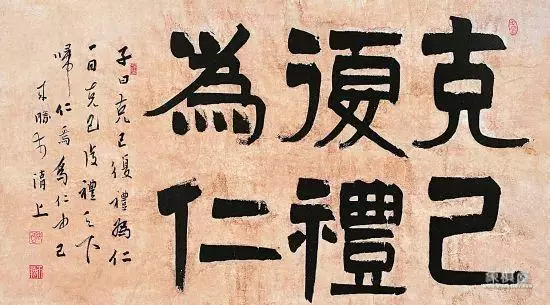 克己
復禮
為仁
子曰克己復禮為仁
一日克己復禮天下
歸仁焉為仁由己
勝 上